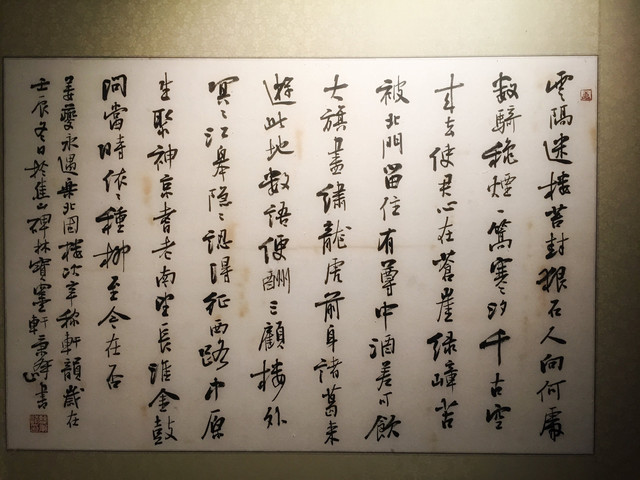 雲隔迷楼苔封狠石人向何處
数騎秋煙一篙寒汐千古空
来去使君心在蒼崖绿嶂苦
被北門留住有尊中酒差可飲
大旗盡绣龍虎前身諸葛来
遊此地数語便酬三顧楼外
冥〻江皋隐〻認得征西路中原
生聚神京耆老南望長淮金鼓
問當時依〻種柳至今在否
姜夔永遇樂北固楼次辛稼軒韻歲在
壬辰冬日於焦山碑林寶墨軒書